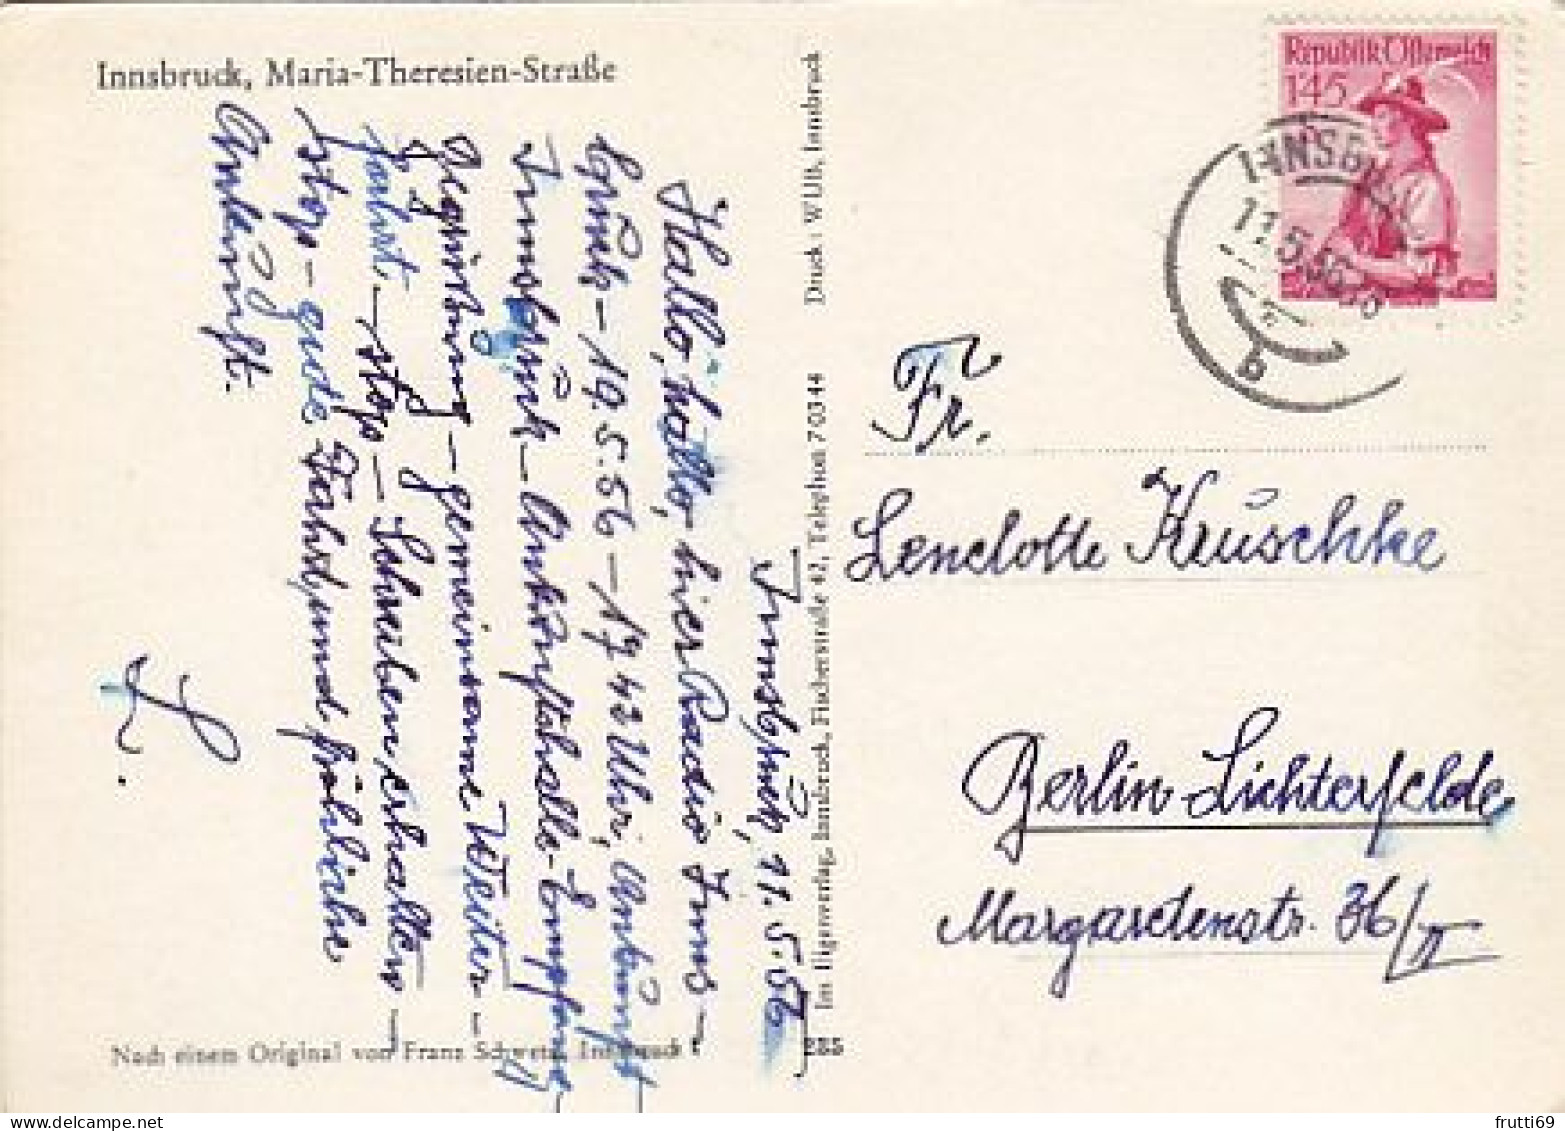 Innsbruck, Maria-Theresien-Straße
Innsbruck, 11.5.56
Hallo, hallo, hier Radio Inns-
bruck – 19.5.56 – 17 42 Uhr, Ankunft
Innsbruck – Ankunftshalle – Empfang –
Begrüßung – gemeinsame Weiter-
fahrt – stop – Schreiben erhalten –
stop – gude Fahrt und fröhliche
Ankunft.
Druck: WUB, Innsbruck
Im Eigenverlag, Innsbruck, Fischerstraße 42, Telephon 70344
Republik Österreich
1·45
INNSBRUCK
11.5.56
b
Fr.
Lenelotte Kruschke
Berlin-Lichterfelde
Margaretenstr. 36/II
Nach einem Original von Franz Schwetz, Innsbruck
285
frutti69